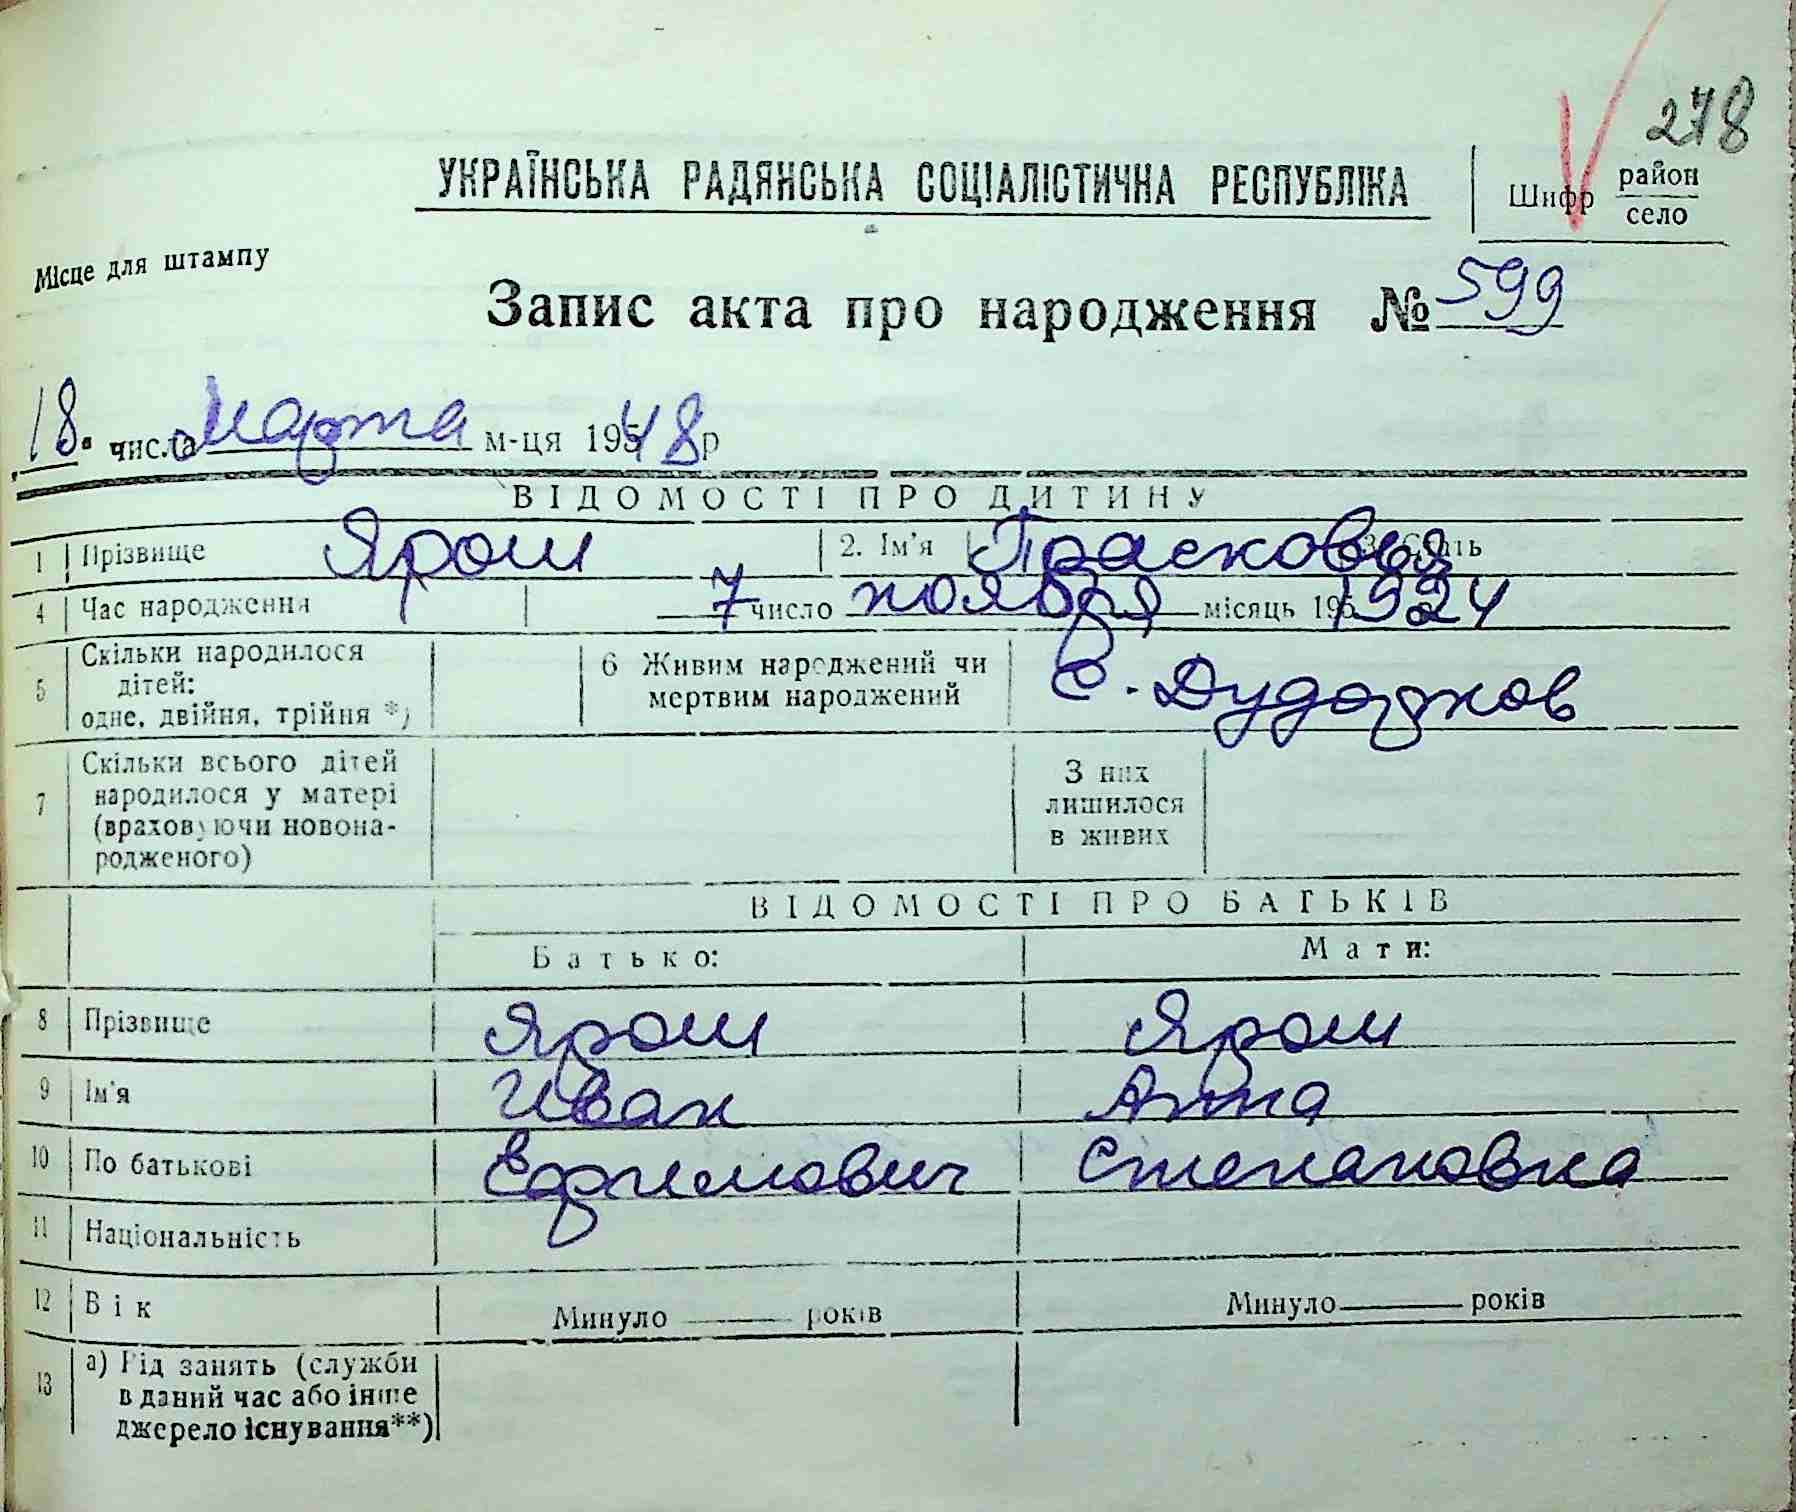 278
УКРАЇНСЬКА РАДЯНСЬКА СОЦІАЛІСТИЧНА РЕСПУБЛІКА
Шифр район село
Місце для штампу
Запис акта про народження № 599
18 числа марта м-ця 1948 р
ВІДОМОСТІ ПРО ДИТИНУ
1 Прізвище Ярош 2. Ім'я Прасковья 3. Стать
4 Час народження 7 число ноября місяць 195 1924
5 Скільки народилося дітей: одне, двійня, трійня *)
6 Живим народжений чи мертвим народжений с. Дударков
7 Скільки всього дітей народилося у матері (враховуючи новонародженого)
З них лишилося в живих
ВІДОМОСТІ ПРО БАТЬКІВ
Батько: Мати:
8 Прізвище Ярош Ярош
9 Ім'я Иван Анна
10 По батькові Ефимович Степановна
11 Національність
12 Вік Минуло років Минуло років
13 а) Рід занять (служби в даний час або інше джерело існування**)